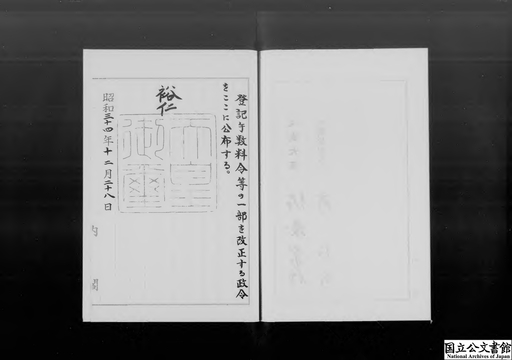 登記手数料令等の一部を改正する政令
をここに公布する。
裕仁
天皇
御璽
昭和三十四年十二月二十八日
内閣
国立公文書館
National Archives of Japan